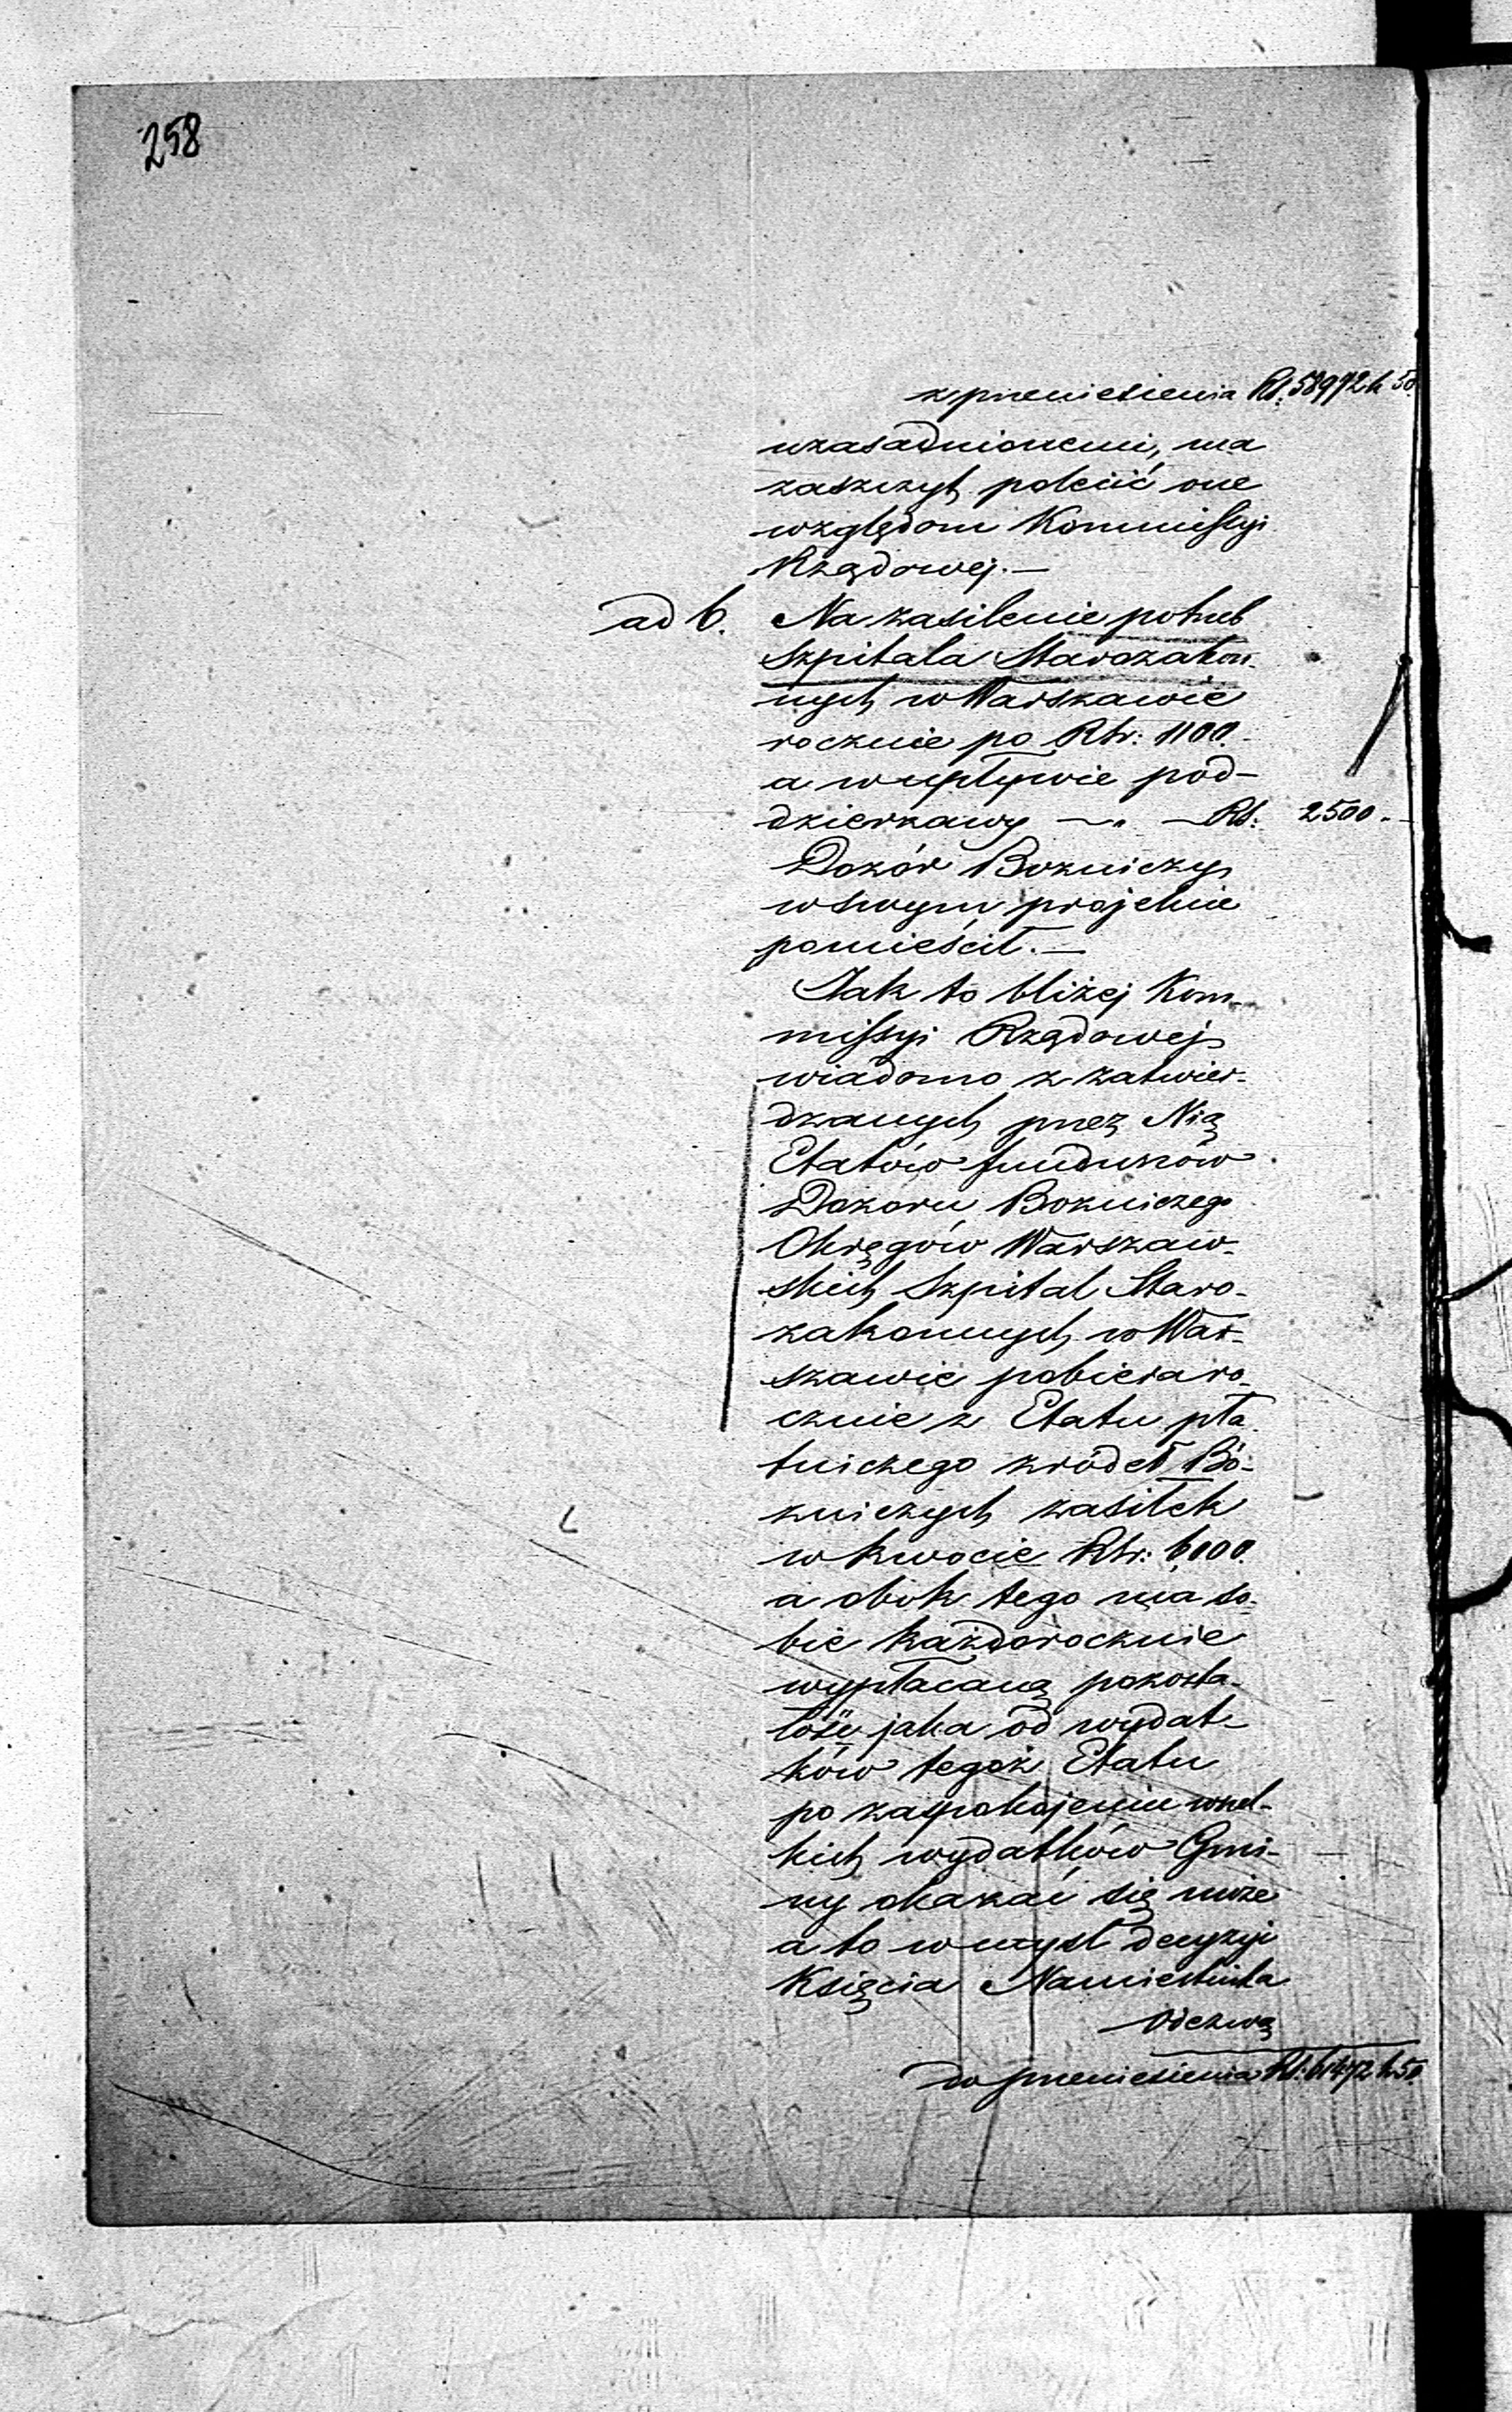 258
z przeniesienia Rs. 58972 k 50.
uzasadnionemi, ma
zaszczyt polecić one
względom Kommissyi
Rządowej. —
ad 6. Na zasilenie potrzeb
Szpitala Starozakon-
nych w Warszawie
rocznie po Rsr: 1100.
a w upływie pod-
dzierżawy — „ — Rs: 2500. -
Dozór Bozniczy
w swym projekcie
pomieścił. —
Jak to bliżej Kom-
missyi Rządowej
wiadomo z zatwier-
dzanych przez Nią
Etatów funduszów
Dozoru Bozniczego
Okręgów Warszaw-
skich Szpital Staro-
zakonnych w War-
szawie pobiera ro-
cznie z Etatu pła-
tniczego źródeł Bó-
zniczych zasiłek
w kwocie Rsr: 6000.
a obok tego ma so-
bie każdorocznie
wypłacaną pozosta-
łość jaka od wydat-
ków tegoż Etatu
po zaspokojeniu wszel-
kich wydatków Gmi-
ny okazać się może
a to w myśl decyzyi
Księcia Namiestnika
odezwą
do przeniesienia Rs: 61472 k 50.